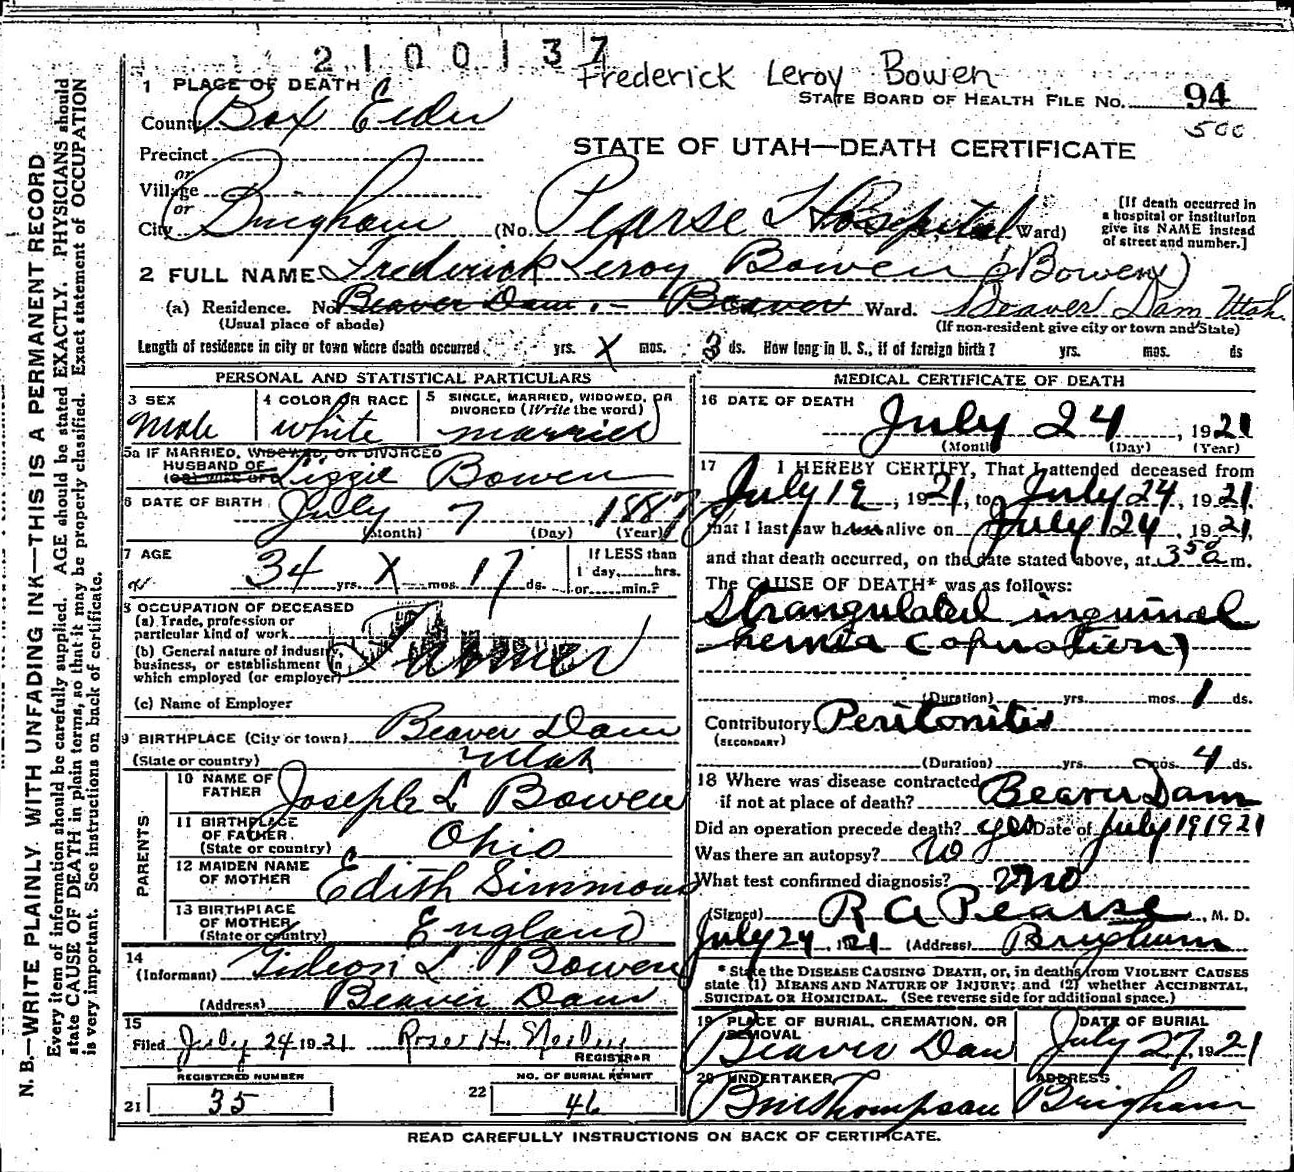 2100137
Frederick Leroy Bowen
1 PLACE OF DEATH
STATE BOARD OF HEALTH FILE NO. 94
500
County Box Elder
STATE OF UTAH—DEATH CERTIFICATE
Precinct
or
Village
or
City Brigham (No. Pearse Hospital Ward)
[If death occurred in
a hospital or institution
give its NAME instead
of street and number.]
2 FULL NAME Frederick Leroy Bowen (Bowen)
(a) Residence. No. Beaver Dam. - Beaver Ward. Beaver Dam Utah.
(Usual place of abode) (If non-resident give city or town and State)
Length of residence in city or town where death occurred yrs. X mos. 3 ds. How long in U. S., if of foreign birth? yrs. mos. ds
PERSONAL AND STATISTICAL PARTICULARS
3 SEX 4 COLOR OR RACE 5 SINGLE, MARRIED, WIDOWED, OR
DIVORCED (Write the word)
Male white married
5a IF MARRIED, WIDOWED, OR DIVORCED
HUSBAND OF
(OR) WIFE OF Lizzie Bowen
6 DATE OF BIRTH July 7 1887
(Month) (Day) (Year)
7 AGE 34 yrs. X mos. 17 ds.
If LESS than
1 day,......hrs.
or......min.?
8 OCCUPATION OF DECEASED
(a) Trade, profession or
particular kind of work
(b) General nature of industry,
business, or establishment in
which employed (or employer) Farmer
(c) Name of Employer
9 BIRTHPLACE (City or town) Beaver Dam
(State or country) Utah
PARENTS
10 NAME OF
FATHER Joseph L Bowen
11 BIRTHPLACE
OF FATHER
(State or country) Ohio
12 MAIDEN NAME
OF MOTHER Edith Simmons
13 BIRTHPLACE
OF MOTHER
(State or country) England
14
(Informant) Gideon L Bowen
(Address) Beaver Dam
15
Filed July 24 1921
REGISTRAR
REGISTERED NUMBER NO. OF BURIAL PERMIT
21 35 22 46
MEDICAL CERTIFICATE OF DEATH
16 DATE OF DEATH
July 24, 1921
(Month) (Day) (Year)
17 I HEREBY CERTIFY, That I attended deceased from
July 19, 1921, to July 24, 1921
that I last saw him alive on July 24, 1921,
and that death occurred, on the date stated above, at 3 50 a m.
The CAUSE OF DEATH* was as follows:
Strangulated inguinal
hernia (operation)
(Duration) yrs. mos. 1 ds.
Contributory Peritonitis
(SECONDARY)
(Duration) yrs. mos. 4 ds.
18 Where was disease contracted
if not at place of death? Beaver Dam
Did an operation precede death? yes Date of July 19 1921
Was there an autopsy? no
What test confirmed diagnosis? no
(Signed) R A Pearse, M. D.
July 24, 1921 (Address) Brigham
* State the DISEASE CAUSING DEATH, or, in deaths from VIOLENT CAUSES
state (1) MEANS AND NATURE OF INJURY; and (2) whether ACCIDENTAL,
SUICIDAL OR HOMICIDAL. (See reverse side for additional space.)
19 PLACE OF BURIAL, CREMATION, OR
REMOVAL DATE OF BURIAL
Beaver Dam July 27, 1921
20 UNDERTAKER ADDRESS
Thompson Brigham
READ CAREFULLY INSTRUCTIONS ON BACK OF CERTIFICATE.
N. B.—WRITE PLAINLY WITH UNFADING INK—THIS IS A PERMANENT RECORD
Every item of information should be carefully supplied. AGE should be stated EXACTLY. PHYSICIANS should
state CAUSE OF DEATH in plain terms, so that it may be properly classified. Exact statement of OCCUPATION
is very important. See instructions on back of certificate.